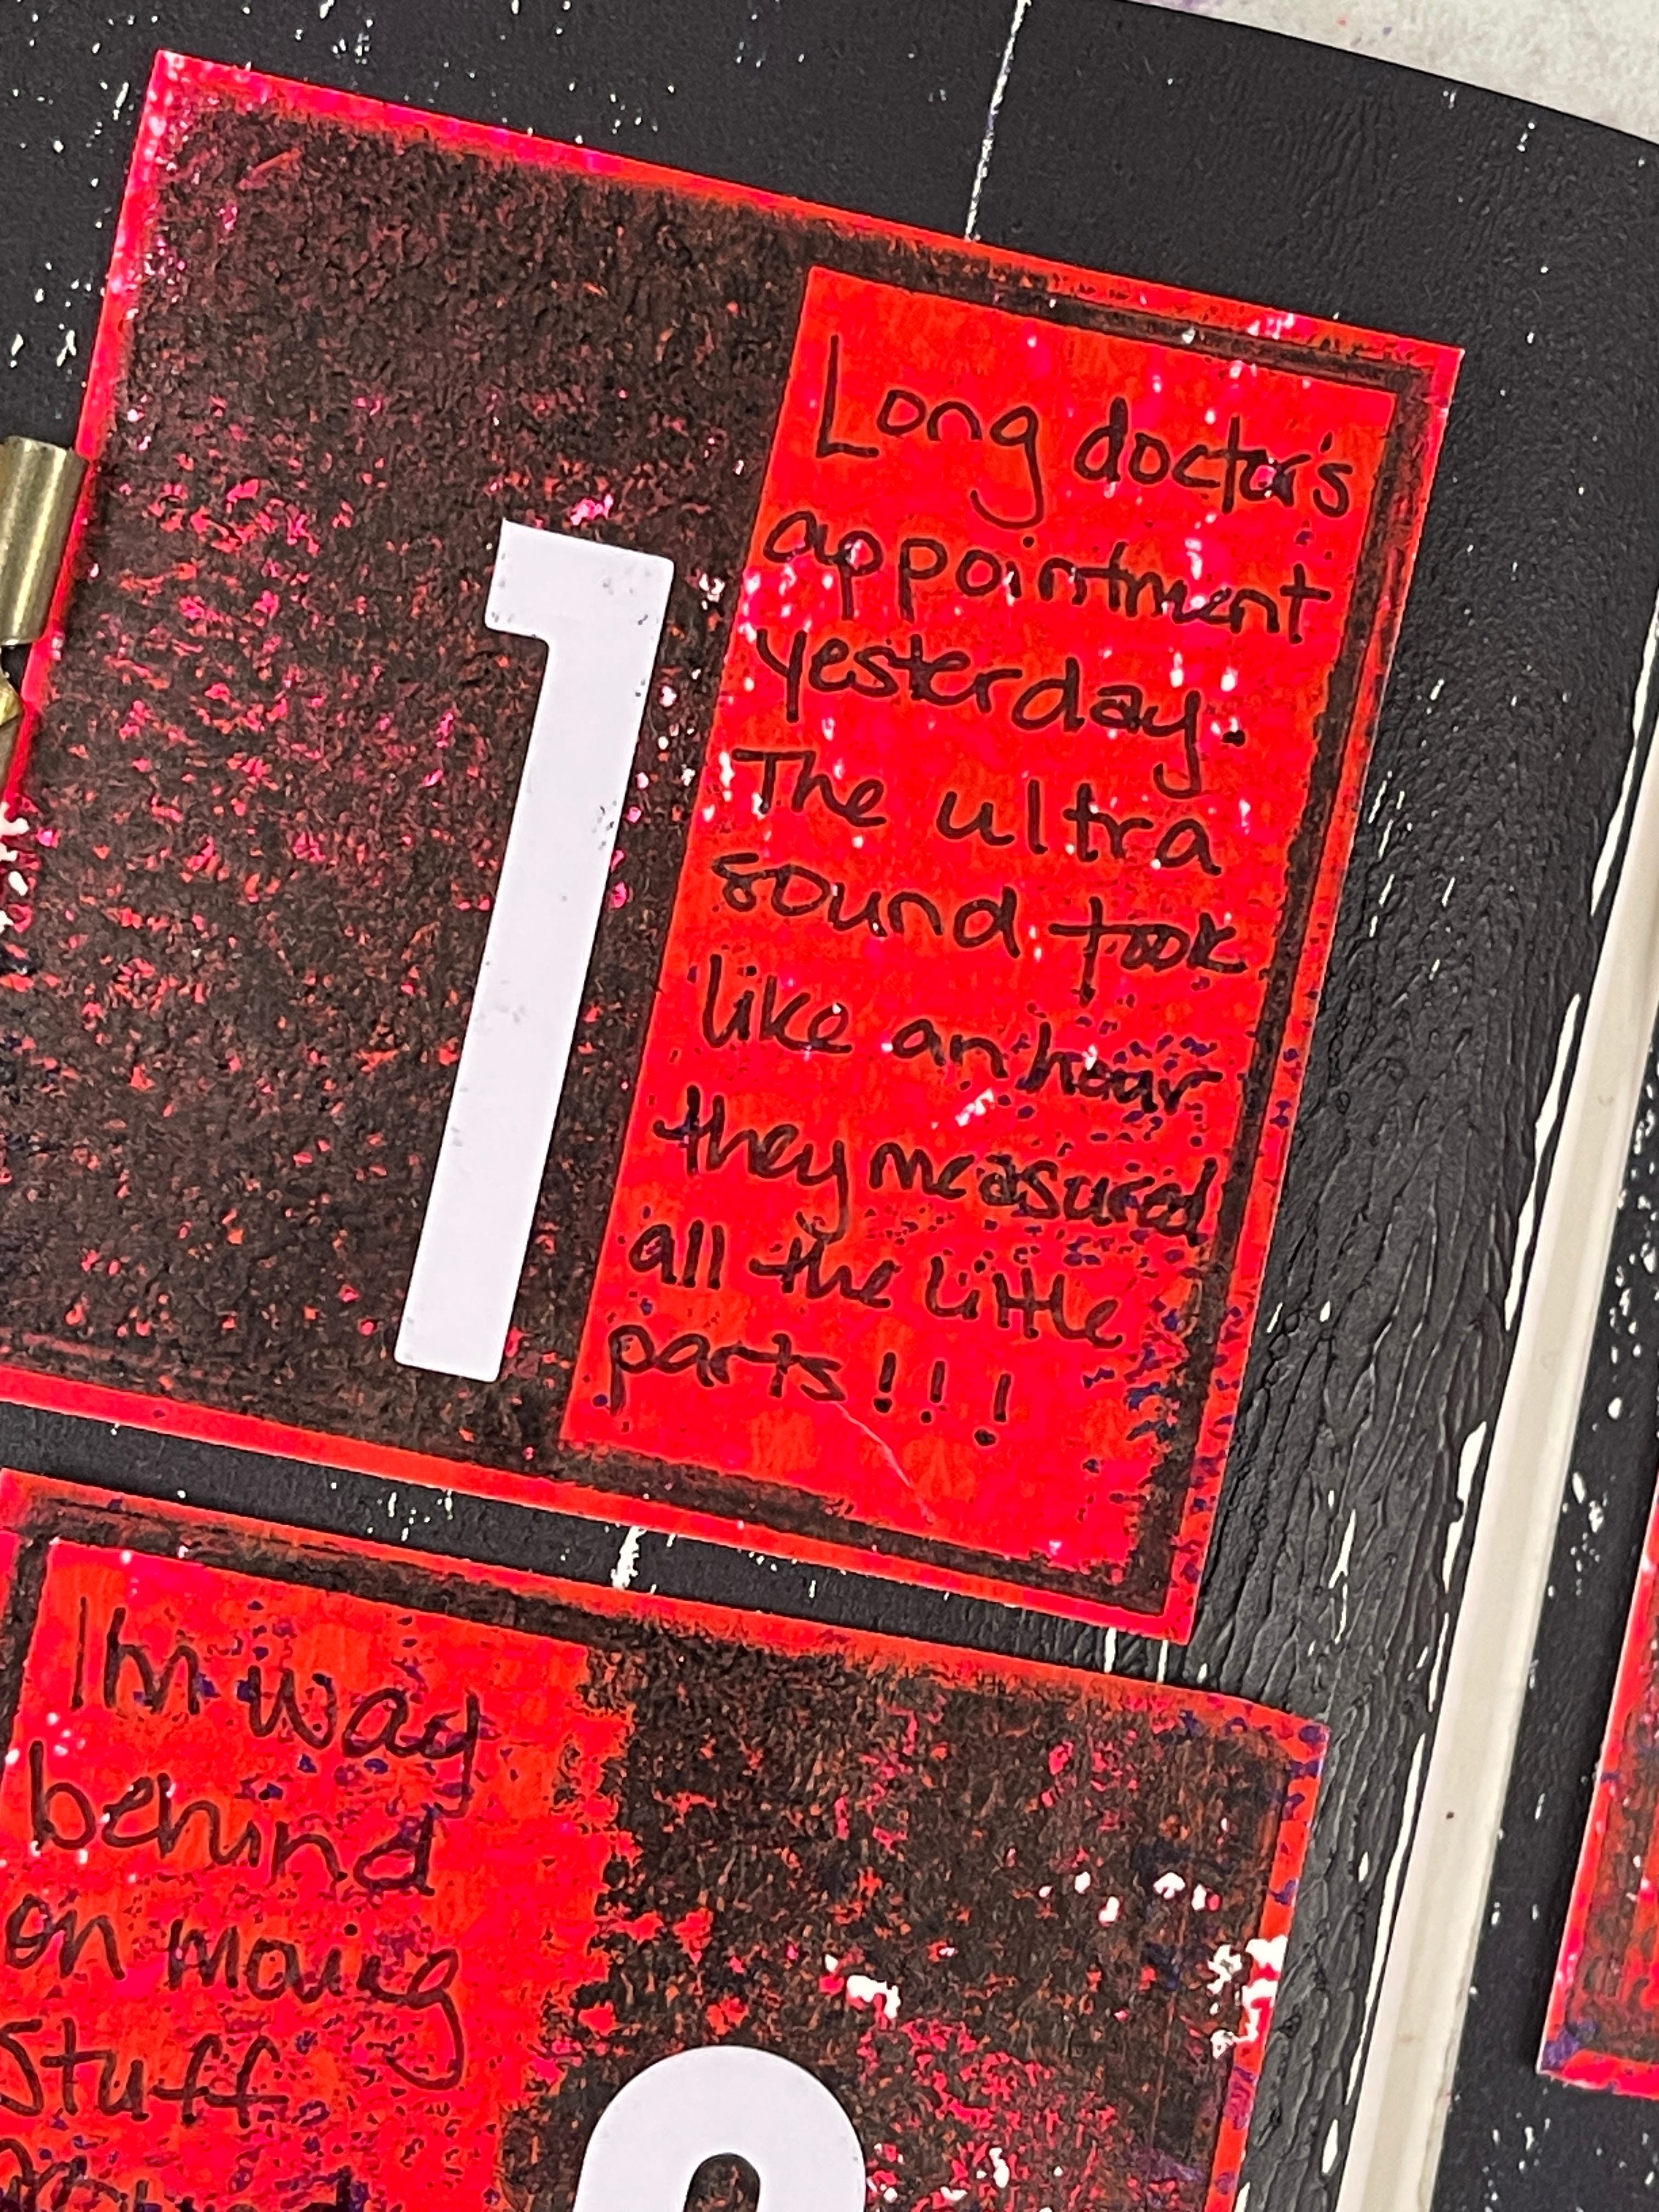 1
Long doctor's
appointment
yesterday.
The ultra
sound took
like an hour
they measured
all the little
parts!!!
I'm way
behind
on moving
stuff